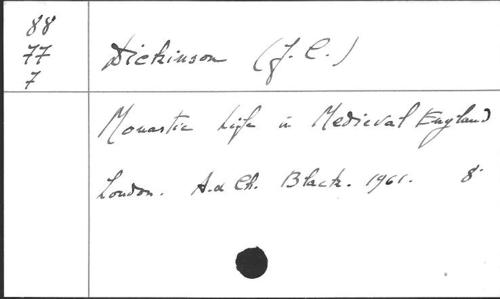 88
77
7
Dickinson (J. C.)
Monastic Life in Medieval England
London. A. & Ch. Black. 1961. 8.